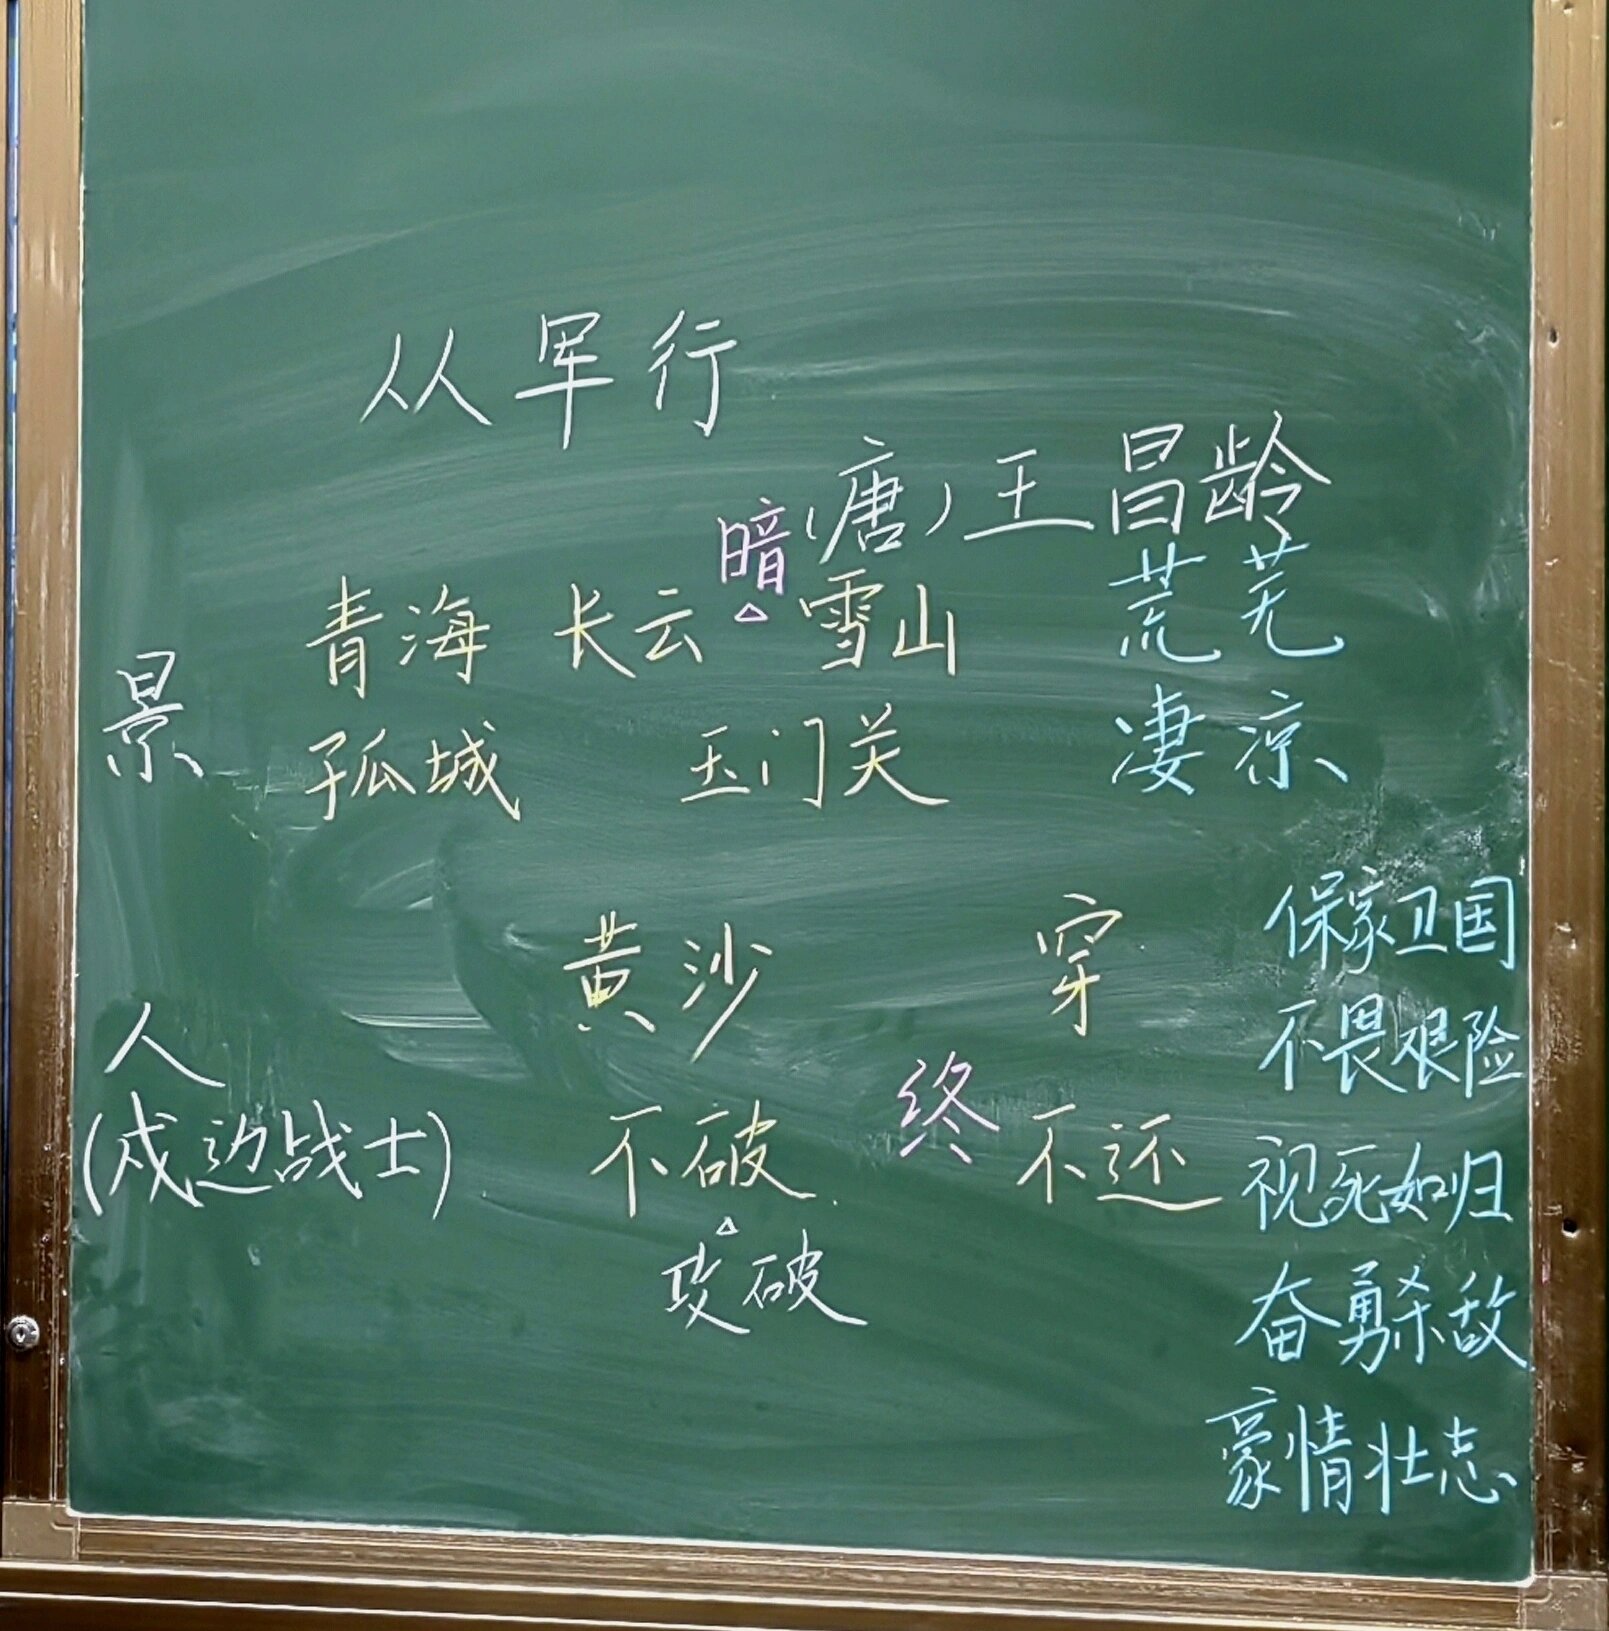 从军行
(唐)王昌龄
青海 长云 暗 雪山 荒芜
景
孤城 玉门关 凄凉
黄沙 穿 保家卫国
人 不畏艰险
(戍边战士) 不破 终不还 视死如归
攻破 奋勇杀敌
豪情壮志